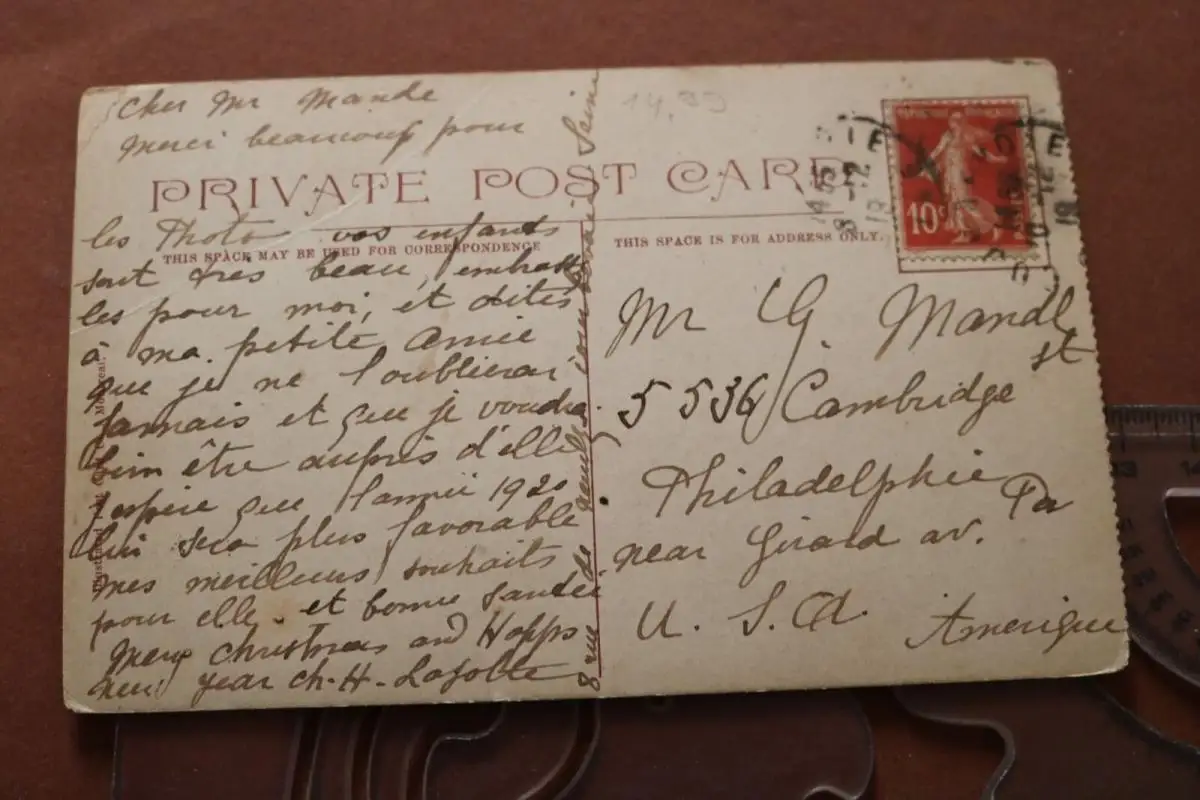 cher Mr Mande
Merci beaucoup pour
PRIVATE POST CARD
THIS SPACE MAY BE USED FOR CORRESPONDENCE
THIS SPACE IS FOR ADDRESS ONLY.
les Photos vos enfants
sont tres beau, embrasse
les pour moi, et dites
à ma petite Amie
que je ne l'oublierai
Jamais et que je voudra
bien être auprès d'elle
j'espère que l'année 1920
lui sera plus favorable
mes meilleurs souhaits
pour elle. et bonne Santée
Merry christmas and Happy
new year ch. H. Lasolle
8 rue de
Seine
14,99
Mr G. Mandl
5536 Cambridge st
Philadelphie Pa
near Girard av.
U. S. A. Amerique
10c